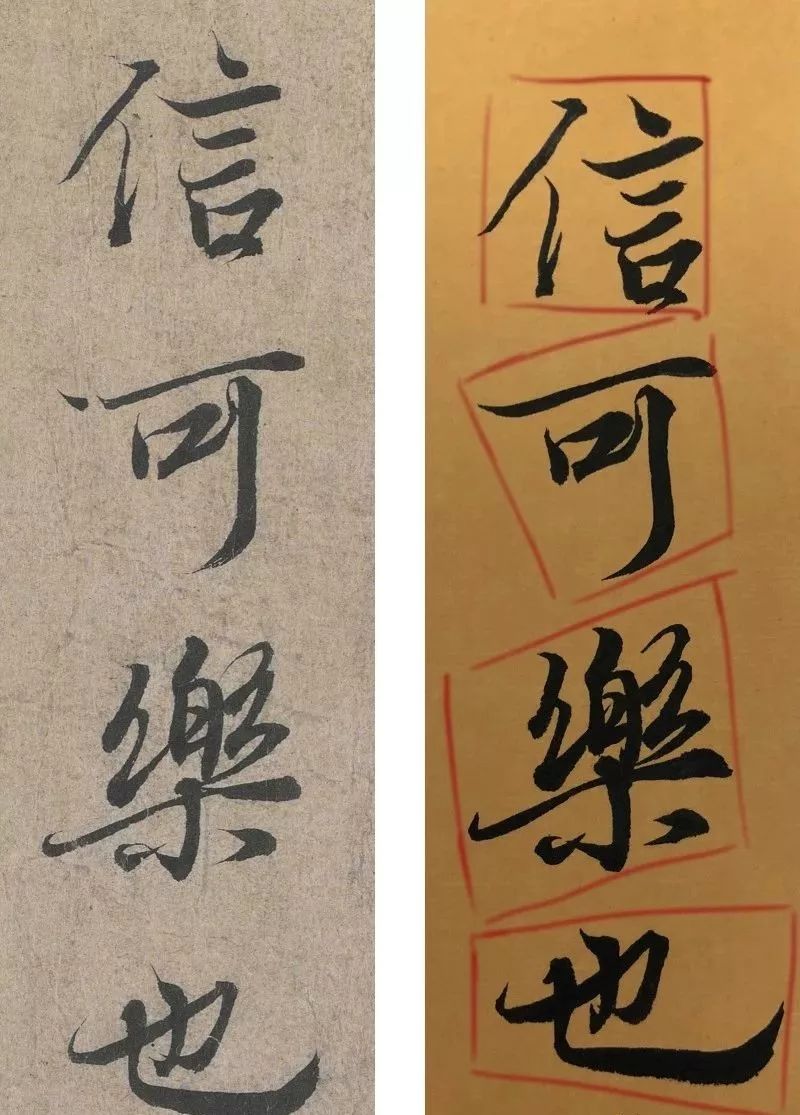 信可樂也
信可樂也